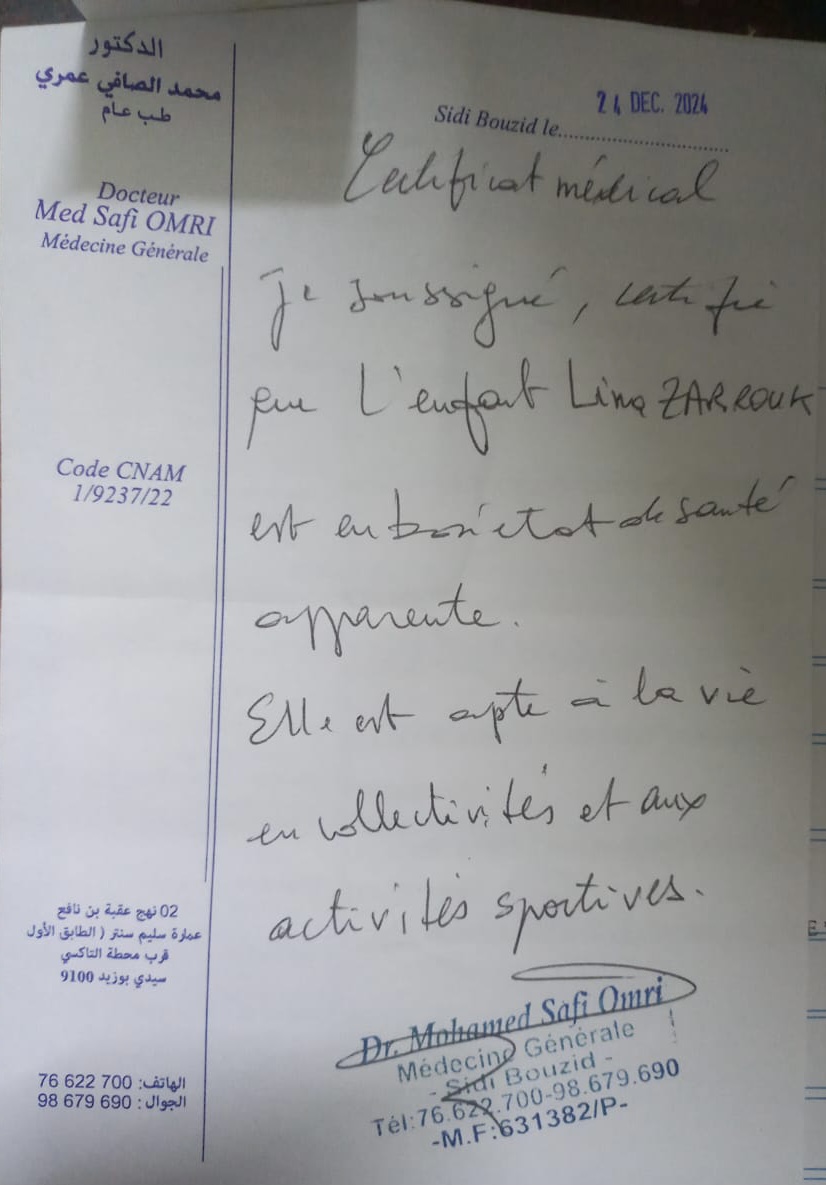 الدكتور
محمد الصافي عمري
طب عام
Docteur
Med Safi OMRI
Médecine Générale
Code CNAM
1/9237/22
02 نهج عقبة بن نافع
عمارة سليم سنتر ( الطابق الأول
قرب محطة التاكسي
سيدي بوزيد 9100
الهاتف: 700 622 76
الجوال : 690 679 98
Sidi Bouzid le.......... 24 DEC. 2024
Certificat médical
Je soussigné, certifie
que L'enfant Lina ZARROUK
est en bon état de santé
apparente.
Elle est apte à la vie
en collectivités et aux
activités sportives.
Dr. Mohamed Safi Omri
Médecine Générale
- Sidi Bouzid -
Tél:76.622.700-98.679.690
-M.F:631382/P-